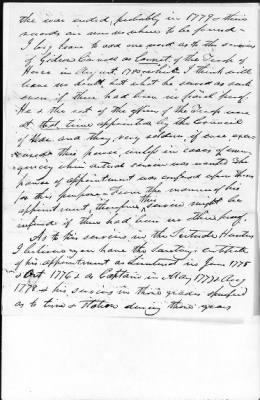 the war ended, probably in 1779 & their
records are now no where to be found —
I beg leave to add one word as to the services
of Gideon Canada as Cornet of the Troop of
Horse in August 1780, which I think will
leave no doubt but what he served as such
even if there had been no parol proof.
He & the rest of the officers of the Troop were
at that time appointed by the Council
of and they very seldom if ever
this power, unless in cases of emer-
gency when actual service was wanted & the
power of appointment was conferred upon them
for this purpose. From the manner of his
appointment, therefore, this service might be
inferred if there had been no other proof.
As to his services in the Hunters
I discovery we have the
of his appointment as Lieutenant in June 1775
& Oct 1776 & as Captain in May 1777 & Aug
1778 & his services in those grades specified
as to time & Station during those years